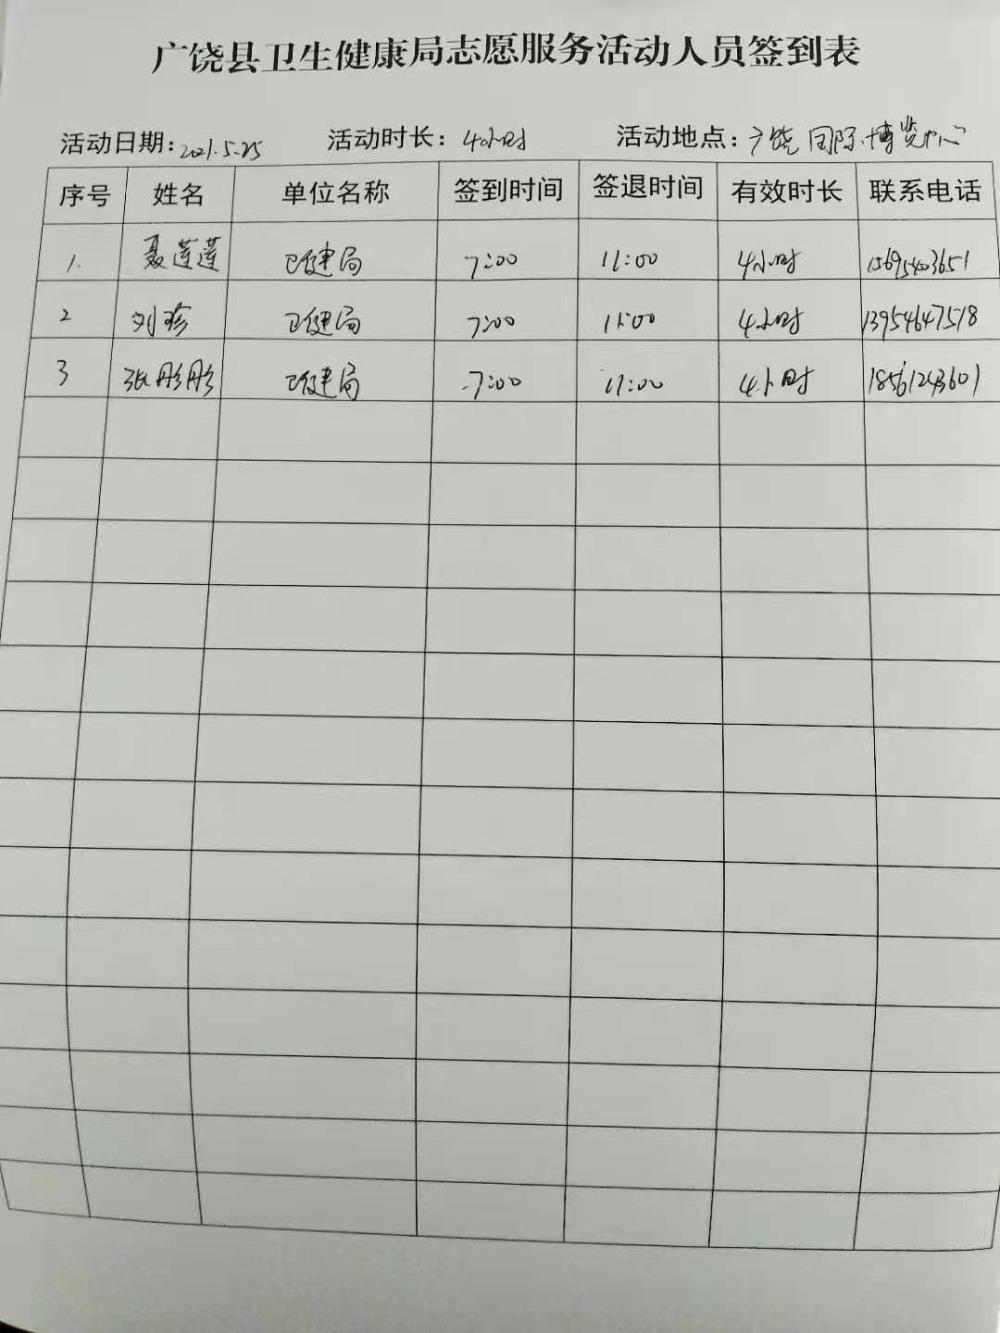 广饶县卫生健康局志愿服务活动人员签到表
活动日期：2021.5.25 活动时长：4小时 活动地点：广饶国际博览中心
序号 姓名 单位名称 签到时间 签退时间 有效时长 联系电话
1. 聂莲莲 卫健局 7:00 11:00 4小时 15695403651
2 刘珍 卫健局 7:00 11:00 4小时 13954647518
3 张彤彤 卫健局 7:00 11:00 4小时 18561243601